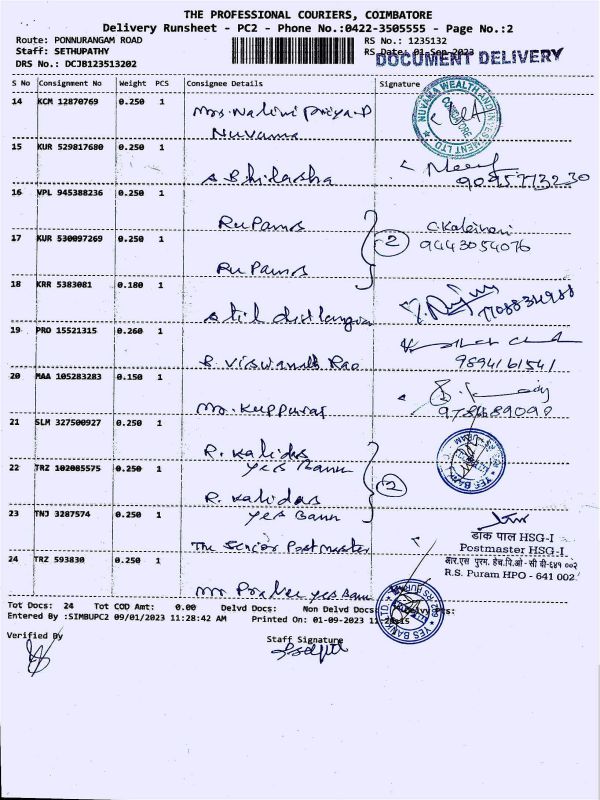 THE PROFESSIONAL COURIERS, COIMBATORE
Delivery Runsheet - PC2 - Phone No.:0422-3505555 - Page No.:2
Route: PONNURANGAM ROAD
RS No.: 1235132
Staff: SETHUPATHY
RS Date: 01-Sep-2023
DOCUMENT DELIVERY
DRS No.: DCJB123513202
S No Consignment No Weight PCS Consignee Details Signature
14 KCM 12870769 0.250 1 Mrs. Nalini Priya.P
Nuvama
NUVAMA WEALTH AND INVESTMENT LTD
COIMBATORE
15 KUR 529817680 0.250 1
16 VPL 945388236 0.250 1
RuPams
2
9443054076
17 KUR 530097269 0.250 1
RuPams
18 KRR 5383081 0.180 1
19 PRO 15521315 0.260 1
B. Viswanath Rao
9894161541
20 MAA 105283283 0.150 1
Mr. Kuppuraj
21 SLM 327500927 0.250 1
R. Kalidas
Yes Bank
22 TRZ 102085575 0.250 1
2
R. Kalidas
Yes Bank
23 TNJ 3287574 0.250 1
The Senior Postmaster
डाक पाल HSG-I
Postmaster HSG-I
आर.एस पुरम. हेच.पि.ओ - सी बी-६४१ ००२
R.S. Puram HPO - 641 002
24 TRZ 593830 0.250 1
Yes Bank
YES BANK LTD
RS PURAM
Tot Docs: 24 Tot COD Amt: 0.00 Delvd Docs: Non Delvd Docs:
Entered By :SIMBUPC2 09/01/2023 11:28:42 AM Printed On: 01-09-2023
Verified By
Staff Signature